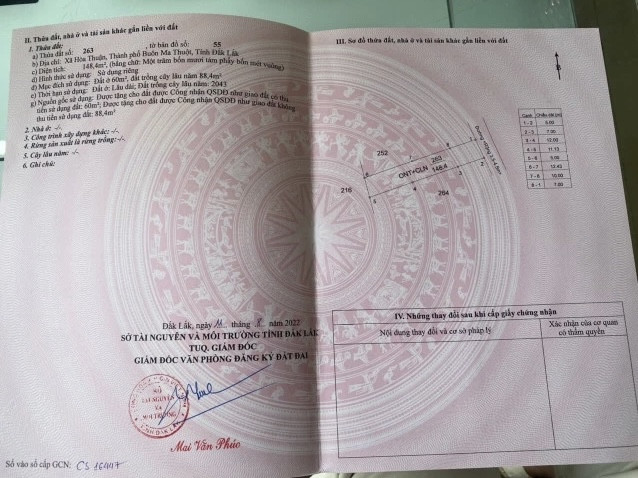 II. Thửa đất, nhà ở và tài sản khác gắn liền với đất
1. Thửa đất:
a) Thửa đất số: 263 , tờ bản đồ số: 55
b) Địa chỉ: Xã Hòa Thuận, Thành phố Buôn Ma Thuột, Tỉnh Đắk Lắk
c) Diện tích: 148,4m², (bằng chữ: Một trăm bốn mươi tám phẩy bốn mét vuông)
d) Hình thức sử dụng: Sử dụng riêng
đ) Mục đích sử dụng: Đất ở 60m², đất trồng cây lâu năm 88,4m²
e) Thời hạn sử dụng: Đất ở: Lâu dài; Đất trồng cây lâu năm: 2043
g) Nguồn gốc sử dụng: Được tặng cho đất được Công nhận QSDĐ như giao đất có thu
tiền sử dụng đất: 60m²; Được tặng cho đất được Công nhận QSDĐ như giao đất không
thu tiền sử dụng đất: 88,4m²
2. Nhà ở: -/-
3. Công trình xây dựng khác: -/-
4. Rừng sản xuất là rừng trồng: -/-
5. Cây lâu năm: -/-
6. Ghi chú:
Đắk Lắk, ngày tháng 8 năm 2022
SỞ TÀI NGUYÊN VÀ MÔI TRƯỜNG TỈNH ĐẮK LẮK
TUQ. GIÁM ĐỐC
GIÁM ĐỐC VĂN PHÒNG ĐĂNG KÝ ĐẤT ĐAI
SỞ
TÀI NGUYÊN
VÀ
MÔI TRƯỜNG
TỈNH ĐẮK LẮK
Mai Văn Phúc
Số vào sổ cấp GCN: CS 16447
III. Sơ đồ thửa đất, nhà ở và tài sản khác gắn liền với đất
B
Cạnh Chiều dài (m)
1 - 2 5.00
2 - 3 7.00
3 - 4 12.00
4 - 5 11.13
5 - 6 5.00
6 - 7 12.43
7 - 8 10.00
8 - 1 7.00
252
216
263
ONT+CLN 148.4
264
1
2
3
4
5
6
7
8
IV. Những thay đổi sau khi cấp giấy chứng nhận
Nội dung thay đổi và cơ sở pháp lý
Xác nhận của cơ quan
có thẩm quyền